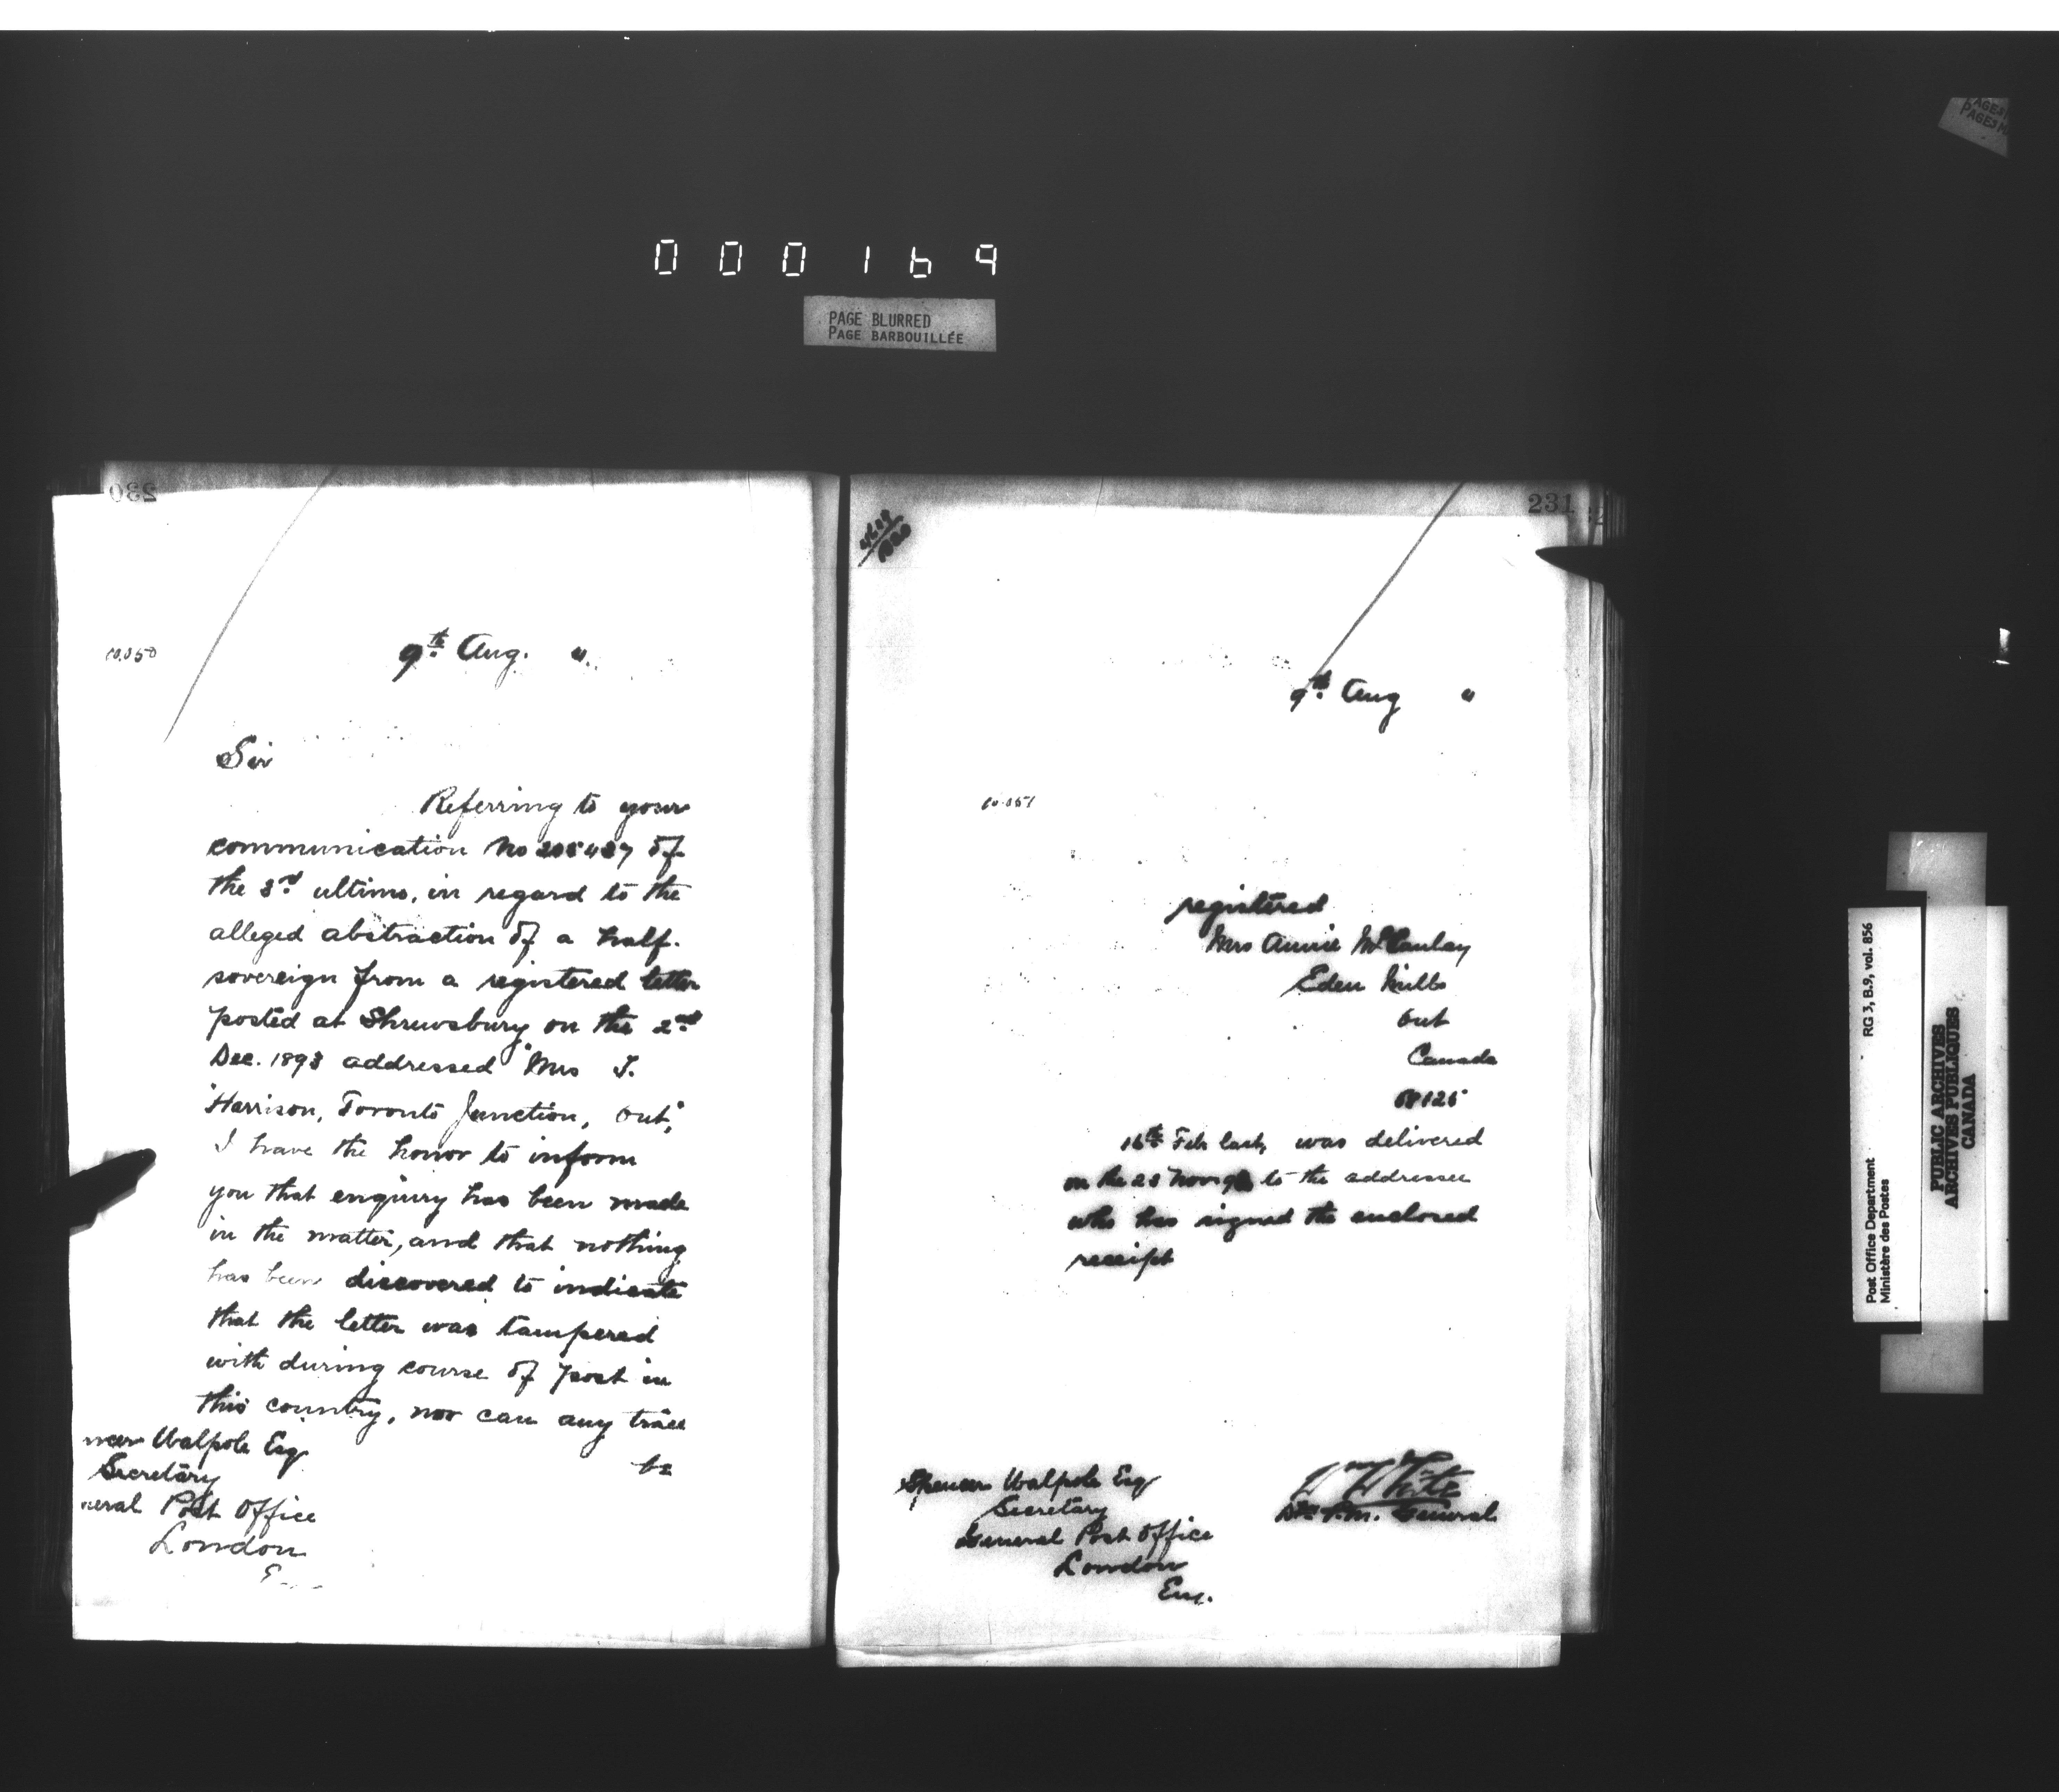 000169
PAGE BLURRED
PAGE BARBOUILLÉE
230
10.050
9th Aug. "
Sir
Referring to your
communication No 205487 of
the 3rd ultimo, in regard to the
alleged abstraction of a half-
sovereign from a registered letter
posted at Shrewsbury on the 2nd
Dec. 1893 addressed "Mrs T.
"Harrison, Toronto Junction, Ont,"
I have the honor to inform
you that enquiry has been made
in the matter, and that nothing
has been discovered to indicate
that the letter was tampered
with during course of post in
this country, nor can any trace
be
ncer Walpole Esq
Secretary
neral Post Office
London
231
10.051
9th Aug "
registered
Mrs Annie McCaulay
Eden Mills
Ont
Canada
68125
16th Feb last, was delivered
on the 28 Nov to the addressee
who has signed the enclosed
receipt
Spencer Walpole Esq
Secretary
General Post Office
London
Eng.
W White
Dy. P.M. General
PAGES
PAGES M
RG 3, B.9, vol. 856
Post Office Department
Ministère des Postes
PUBLIC ARCHIVES
ARCHIVES PUBLIQUES
CANADA